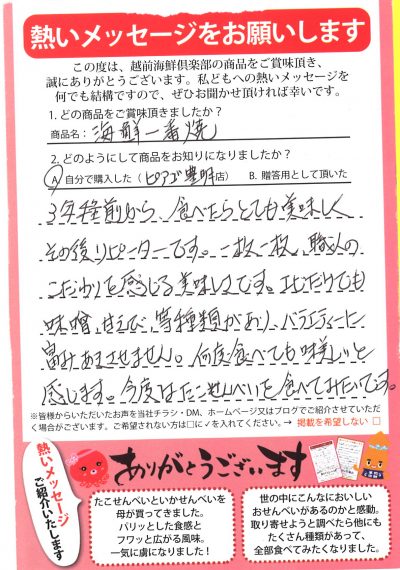 熱いメッセージをお願いします
この度は、越前海鮮倶楽部の商品をご賞味頂き、
誠にありがとうございます。私どもへの熱いメッセージを
何でも結構ですので、ぜひお聞かせ頂ければ幸いです。
1. どの商品をご賞味頂きましたか？
商品名：海鮮一番焼
2. どのようにして商品をお知りになりましたか？
A 自分で購入した（ピアゴ豊明店） B. 贈答用として頂いた
3年程前から、食べたらとても美味しく
その後リピーターです。一枚一枚、職人の
こだわりを感じる美味しさです。エビだけでも
味噌、甘えび、等種類があり、バラエティーに
富み、あきませません。何度食べても美味しいと
感じます。今度はたこせんべいを食べてみたいです。
※皆様からいただいたお声を当社チラシ・DM、ホームページ又はブログでご紹介させていただ
く場合がございます。ご希望されない方は□に✓を入れてください。→ 掲載を希望しない □
熱いメッセージ
ご紹介いたします
ありがとうございます
たこせんべいといかせんべいを
母が買ってきました。
パリッとした食感と
フワッと広がる風味。
一気に虜になりました！
世の中にこんなにおいしい
おせんべいがあるのかと感動。
取り寄せようと調べたら他にも
たくさん種類があって、
全部食べてみたくなりました。